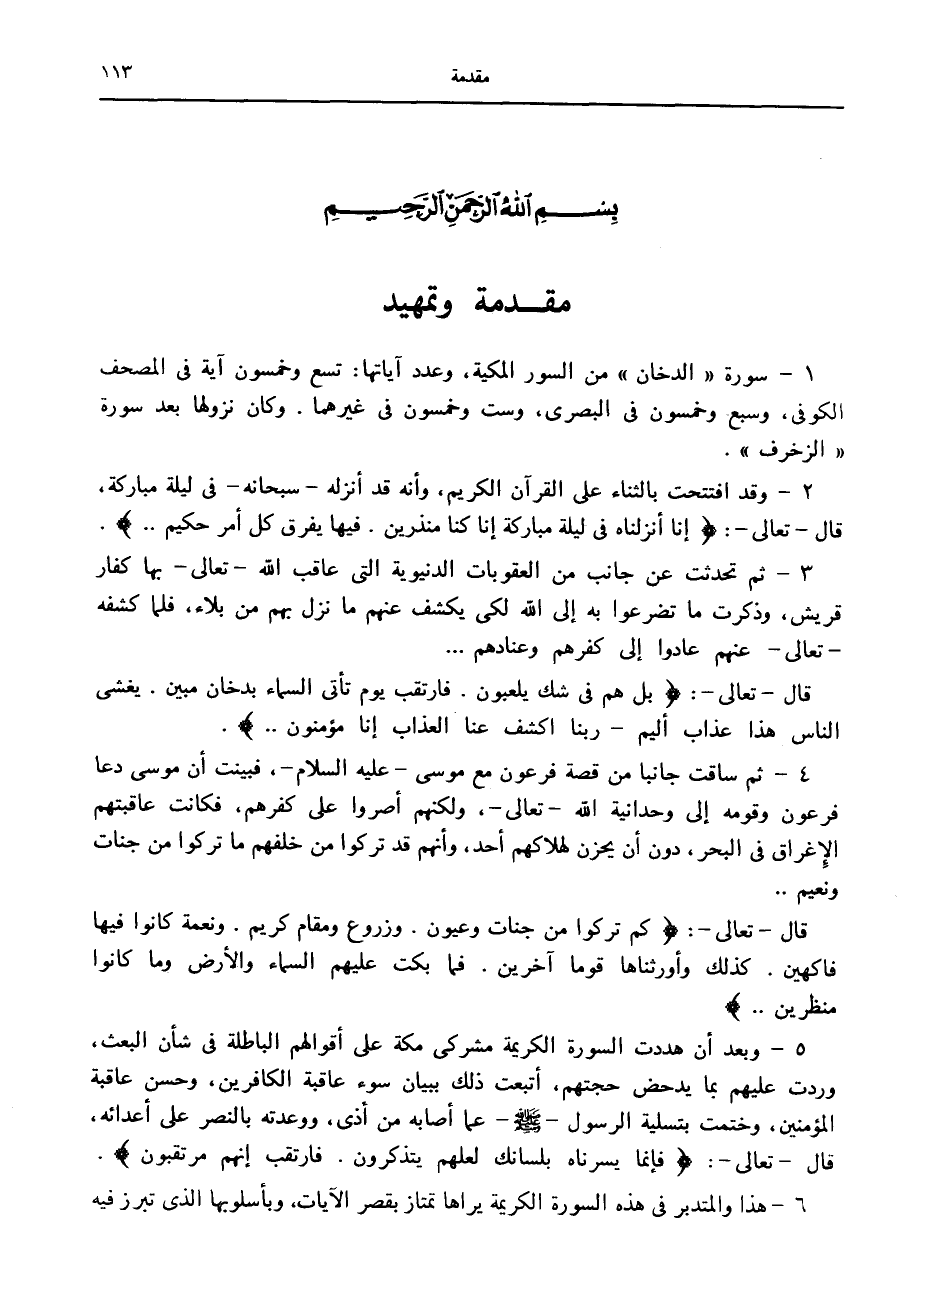 مقدمة ١١٣
بِسْمِ اللَّهِ الرَّحْمَنِ الرَّحِيمِ
مقدمة وتمهيد
١ - سورة « الدخان » من السور المكية، وعدد آياتها: تسع وخمسون آية فى المصحف
الكوفى، وسبع وخمسون فى البصرى، وست وخمسون فى غيرهما . وكان نزولها بعد سورة
« الزخرف » .
٢ - وقد افتتحت بالثناء على القرآن الكريم، وأنه قد أنزله -سبحانه- فى ليلة مباركة،
قال -تعالى-: ﴿ إنا أنزلناه فى ليلة مباركة إنا كنا منذرين . فيها يفرق كل أمر حكيم .. ﴾ .
٣ - ثم تحدثت عن جانب من العقوبات الدنيوية التى عاقب الله -تعالى- بها كفار
قريش، وذكرت ما تضرعوا به إلى الله لكى يكشف عنهم ما نزل بهم من بلاء، فلما كشفه
-تعالى- عنهم عادوا إلى كفرهم وعنادهم ...
قال -تعالى-: ﴿ بل هم فى شك يلعبون . فارتقب يوم تأتى السماء بدخان مبين . يغشى
الناس هذا عذاب أليم - ربنا اكشف عنا العذاب إنا مؤمنون .. ﴾ .
٤ - ثم ساقت جانبا من قصة فرعون مع موسى -عليه السلام-، فبينت أن موسى دعا
فرعون وقومه إلى وحدانية الله -تعالى-، ولكنهم أصروا على كفرهم، فكانت عاقبتهم
الإغراق فى البحر، دون أن يحزن لهلاكهم أحد، وأنهم قد تركوا من خلفهم ما تركوا من جنات
ونعيم ..
قال -تعالى-: ﴿ كم تركوا من جنات وعيون . وزروع ومقام كريم . ونعمة كانوا فيها
فاكهين . كذلك وأورثناها قوما آخرين . فما بكت عليهم السماء والأرض وما كانوا
منظرين .. ﴾
٥ - وبعد أن هددت السورة الكريمة مشركى مكة على أقوالهم الباطلة فى شأن البعث،
وردت عليهم بما يدحض حجتهم، أتبعت ذلك ببيان سوء عاقبة الكافرين، وحسن عاقبة
المؤمنين، وختمت بتسلية الرسول -ﷺ- عما أصابه من أذى، ووعدته بالنصر على أعدائه،
قال -تعالى-: ﴿ فإنما يسرناه بلسانك لعلهم يتذكرون . فارتقب إنهم مرتقبون ﴾ .
٦ - هذا والمتدبر فى هذه السورة الكريمة يراها تمتاز بقصر الآيات، وبأسلوبها الذى تبرز فيه